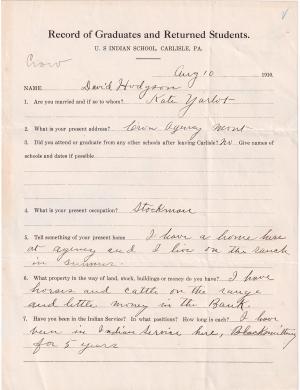 Record of Graduates and Returned Students.
U. S INDIAN SCHOOL, CARLISLE, PA.
Crow
Aug 10 1910.
NAME David Hodgson
1. Are you married and if so to whom? Kate Yarlot
2. What is your present address? Crow Agency Mont
3. Did you attend or graduate from any other schools after leaving Carlisle? No. Give names of
schools and dates if possible.
4. What is your present occupation? Stockman
5. Tell something of your present home I have a home here
at agency and I live on the ranch
in summer.
6. What property in the way of land, stock, buildings or money do you have? I have
horses and cattle on the range
and little money in the Bank.
7. Have you been in the Indian Service? In what positions? How long is each? I have
been in Indian Service here, Blacksmithing
for 5 years